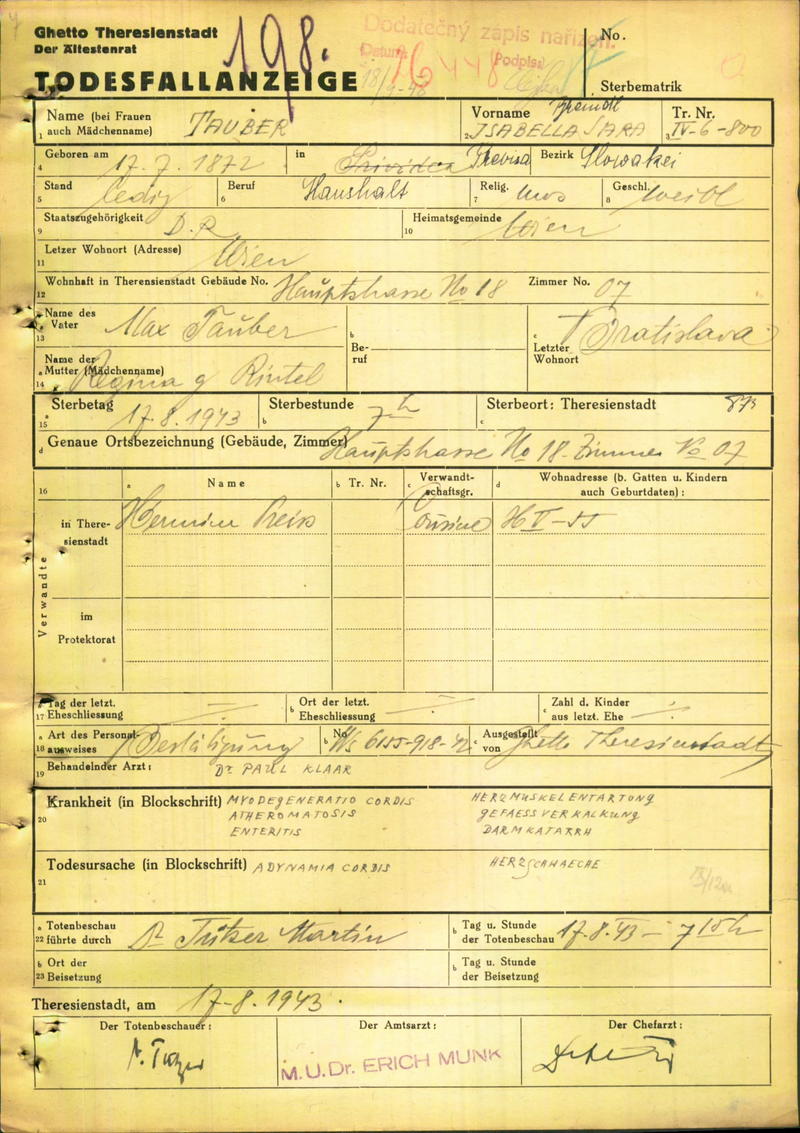 Ghetto Theresienstadt
Der Ältestenrat
TODESFALLANZEIGE
198.
Dodatečný zápis nařízen.
Datum:
Podpis:
No.
Sterbematrik
Name (bei Frauen auch Mädchenname) TAUBER
Vorname ISABELLA SARA
Tr. Nr. IV-6-800
Geboren am 17.7.1872 in Trevisa Bezirk Slowakei
Stand ledig Beruf Haushalt Relig. mos Geschl. weibl
Staatszugehörigkeit D.R. Heimatsgemeinde Wien
Letzer Wohnort (Adresse) Wien
Wohnhaft in Theresienstadt Gebäude No. Hauptstrasse No 18 Zimmer No. 07
Name des Vater Max Tauber
Be-ruf
Letzter Wohnort Bratislava
Name der Mutter (Mädchenname) Regina g Rintel
Sterbetag 17.8.1943 Sterbestunde 7h Sterbeort: Theresienstadt
Genaue Ortsbezeichnung (Gebäude, Zimmer) Hauptstrasse No 18 Zimmer No 07
16 Name Tr. Nr. Verwandt-schaftsgr. Wohnadresse (b. Gatten u. Kindern auch Geburtdaten):
Verwandte
in There-sienstadt Cousine
im Protektorat
17 Tag der letzt. Eheschliessung Ort der letzt. Eheschliessung Zahl d. Kinder aus letzt. Ehe
18 Art des Personal-ausweises Bestätigung No 6155-918-42 Ausgestellt von Ghetto Theresienstadt
19 Behandelnder Arzt: Dr PAUL KLAAR
20 Krankheit (in Blockschrift) MYODEGENERATIO CORDIS HERZMUSKELENTARTUNG
ATHEROMATOSIS GEFAESSVERKALKUNG
ENTERITIS DARMKATARRH
21 Todesursache (in Blockschrift) ADYNAMIA CORDIS HERZSCHWAECHE
22 Totenbeschau führte durch Martin Tag u. Stunde der Totenbeschau 17.8.43 - 7 15h
23 Ort der Beisetzung Tag u. Stunde der Beisetzung
Theresienstadt, am 17-8.1943.
Der Totenbeschauer: Der Amtsarzt: Der Chefarzt:
M.U.Dr. ERICH MUNK